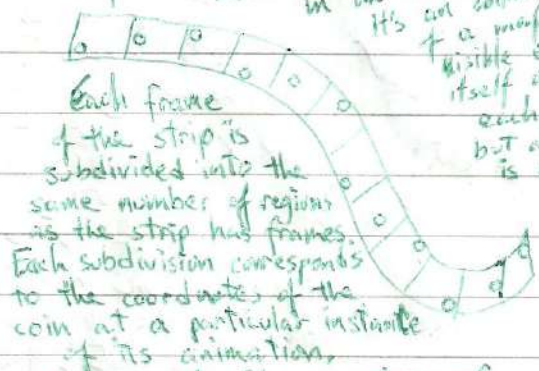 in
it's an
of a
visible
itself
each
but
is
Each frame
of the strip is
subdivided into the
same number of regions
as the strip has frames.
Each subdivision corresponds
to the coordinates of the
coin at a particular instante
of its animation.